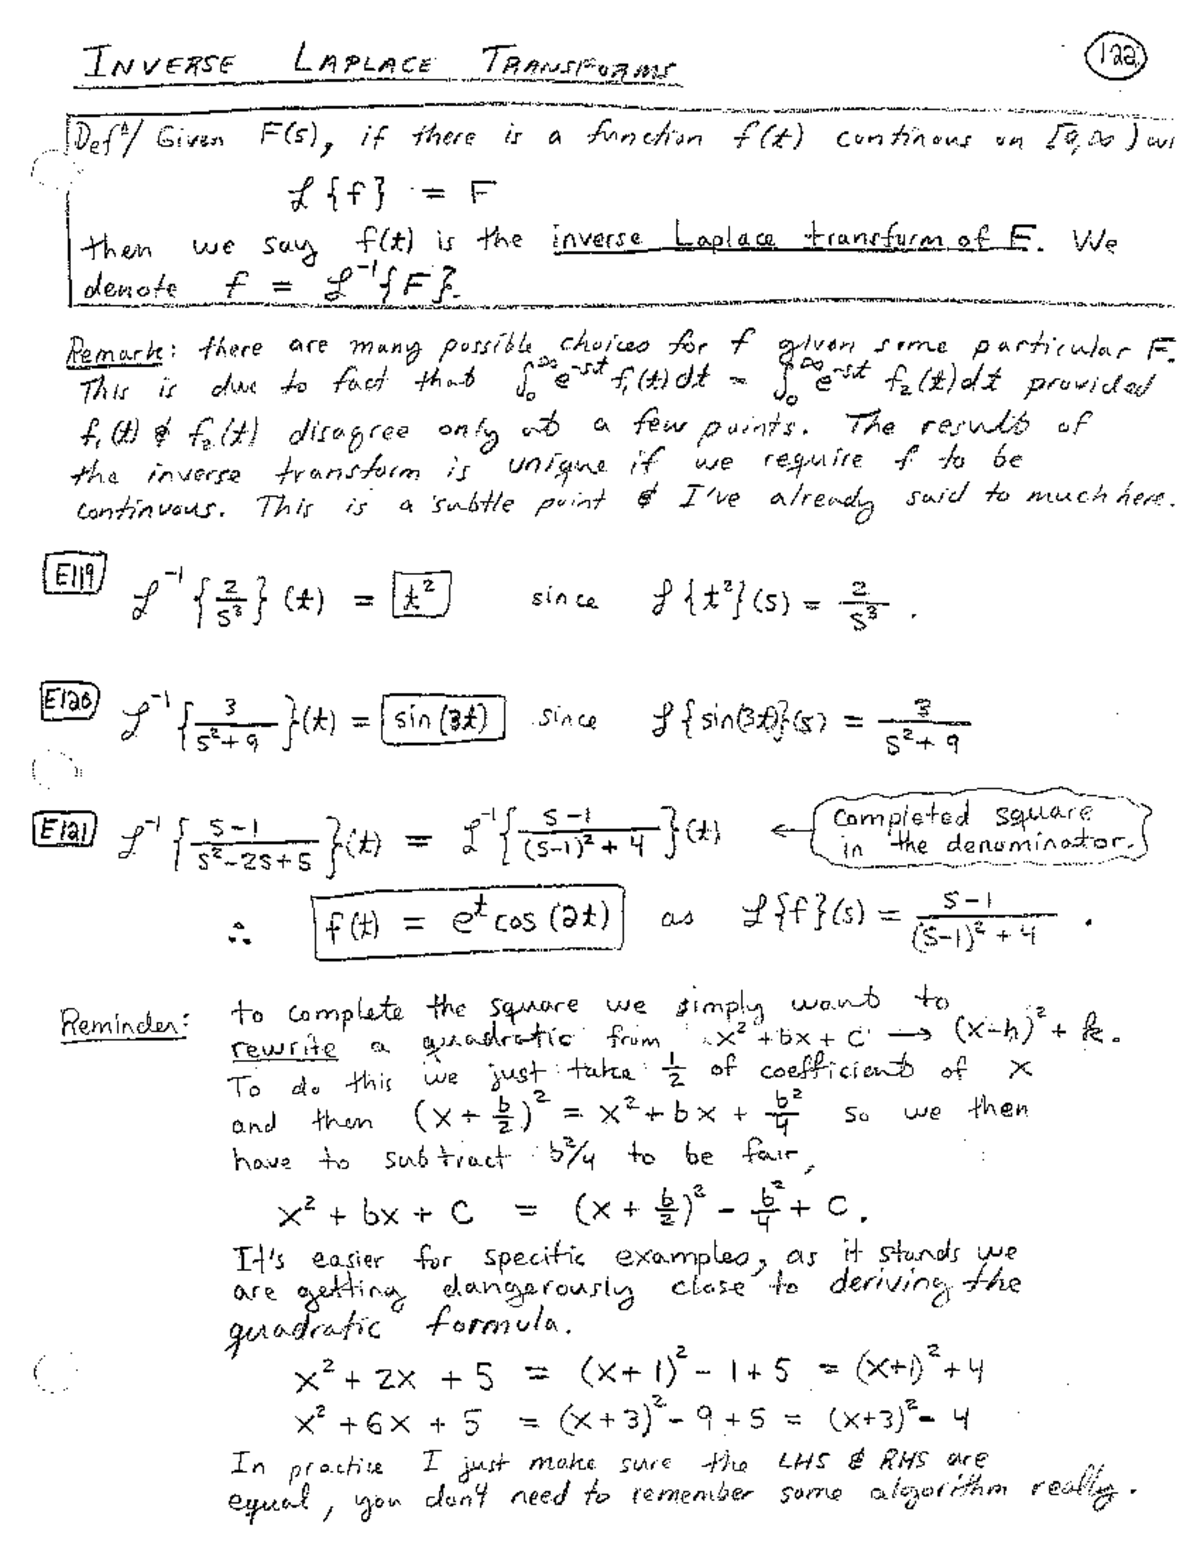 INVERSE LAPLACE TRANSFORMS
122
Defⁿ/ Given F(s), if there is a function f(t) continous on [0,∞) wi
ℒ{f} = F
then we say f(t) is the inverse Laplace transform of F. We
denote f = ℒ⁻¹{F}.
Remark: there are many possible choices for f given some particular F.
This is due to fact that ∫₀^∞ e^(-st) f₁(t)dt = ∫₀^∞ e^(-st) f₂(t)dt provided
f₁(t) & f₂(t) disagree only at a few points. The result of
the inverse transform is unique if we require f to be
continuous. This is a subtle point & I've already said to much here.
E119 ℒ⁻¹{2/s³}(t) = t² since ℒ{t²}(s) = 2/s³.
E120 ℒ⁻¹{3/(s²+9)}(t) = sin(3t) since ℒ{sin(3t)}(s) = 3/(s²+9)
E121 ℒ⁻¹{(s-1)/(s²-2s+5)}(t) = ℒ⁻¹{(s-1)/((s-1)²+4)}(t) ← Completed square
in the denominator.
∴ f(t) = e^t cos(2t) as ℒ{f}(s) = (s-1)/((s-1)²+4).
Reminder: to complete the square we simply want to
rewrite a quadratic from x²+bx+c → (x-h)²+k.
To do this we just take ½ of coefficient of x
and then (x+b/2)² = x²+bx+b²/4 so we then
have to subtract b²/4 to be fair,
x² + bx + c = (x + b/2)² - b²/4 + c.
It's easier for specific examples, as it stands we
are getting dangerously close to deriving the
quadratic formula.
x² + 2x + 5 = (x+1)² - 1 + 5 = (x+1)² + 4
x² + 6x + 5 = (x+3)² - 9 + 5 = (x+3)² - 4
In practise I just make sure the LHS & RHS are
equal, you don't need to remember some algorithm really.